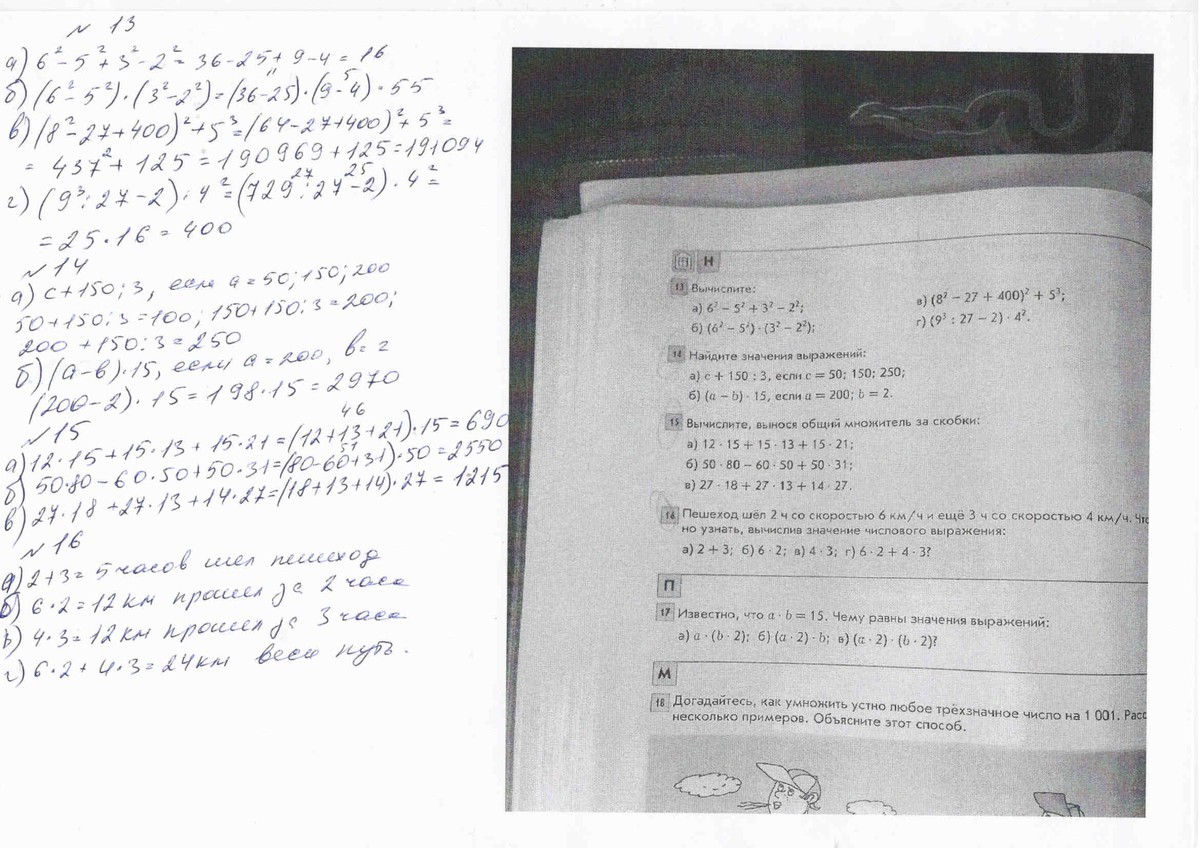 № 13
а) 6² - 5² + 3² - 2² = 36 - 25 + 9 - 4 = 16
б) (6² - 5²) · (3² - 2²) = (36 - 25) · (9 - 4) = 55
11 5
в) (8² - 27 + 400)² + 5³ = (64 - 27 + 400)² + 5³ =
= 437² + 125 = 190969 + 125 = 191094
27 25
г) (9³ : 27 - 2) · 4² = (729 : 27 - 2) · 4² =
= 25 · 16 = 400
№ 14
а) с + 150 : 3, если а = 50; 150; 200
50 + 150 : 3 = 100; 150 + 150 : 3 = 200;
200 + 150 : 3 = 250
б) (а - в) · 15, если а = 200, в = 2
(200 - 2) · 15 = 198 · 15 = 2970
№ 15
46
а) 12 · 15 + 15 · 13 + 15 · 21 = (12 + 13 + 21) · 15 = 690
51
б) 50 · 80 - 60 · 50 + 50 · 31 = (80 - 60 + 31) · 50 = 2550
в) 27 · 18 + 27 · 13 + 14 · 27 = (18 + 13 + 14) · 27 = 1215
№ 16
а) 2 + 3 = 5 часов шел пешеход
б) 6 · 2 = 12 км прошел за 2 часа
в) 4 · 3 = 12 км прошел за 3 часа
г) 6 · 2 + 4 · 3 = 24 км весь путь.
Н
13 Вычислите:
а) 6² – 5² + 3² – 2²;
б) (6² – 5²) · (3² – 2²);
в) (8² – 27 + 400)² + 5³;
г) (9³ : 27 – 2) · 4².
14 Найдите значения выражений:
а) c + 150 : 3, если c = 50; 150; 250;
б) (a – b) · 15, если a = 200; b = 2.
15 Вычислите, вынося общий множитель за скобки:
а) 12 · 15 + 15 · 13 + 15 · 21;
б) 50 · 80 – 60 · 50 + 50 · 31;
в) 27 · 18 + 27 · 13 + 14 · 27.
16 Пешеход шёл 2 ч со скоростью 6 км/ч и ещё 3 ч со скоростью 4 км/ч. Что
но узнать, вычислив значение числового выражения:
а) 2 + 3; б) 6 · 2; в) 4 · 3; г) 6 · 2 + 4 · 3?
П
17 Известно, что a · b = 15. Чему равны значения выражений:
а) a · (b · 2); б) (a · 2) · b; в) (a · 2) · (b · 2)?
М
18 Догадайтесь, как умножить устно любое трёхзначное число на 1 001. Расс
несколько примеров. Объясните этот способ.